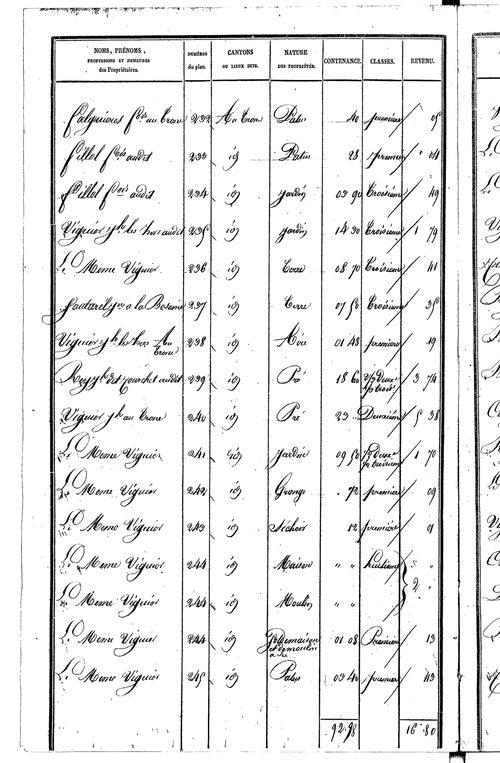 NOMS, PRÉNOMS, PROFESSIONS ET DEMEURES des Propriétaires. NUMÉROS du plan. CANTONS OU LIEUX DITS. NATURE DES PROPRIÉTÉS. CONTENANCE. CLASSES. REVENU.
au Trone 232 Au Trone Patus 40 première 05
fillol audit 233 id Patus 28 première 04
fillol audit 234 id jardin 03 90 Troisieme 49
Viguier les hoirs audit 235 id jardin 14 30 Troisieme 1 79
Le Meme Viguier 236 id Terre 08 70 Troisieme 41
a la 237 id Terre 07 50 Troisieme 35
Viguier les hoirs Au Trone 238 id 01 48 première 19
Rey dit audit 239 id Pré 18 60 3 74
Viguier au Trone 240 id Pré 23 Deuxieme 5 38
Le Meme Viguier 241 id Jardin 09 50 1 70
Le Meme Viguier 242 id Grange 72 première 09
Le Meme Viguier 243 id séchoir 12 première 01
Le Meme Viguier 244 id Maison " " huitieme " "
Le Meme Viguier 244 id Moulin " " 2 "
Le Meme Viguier 244 id 01 08 Premiere 13
Le Meme Viguier 245 id Patus 03 40 premiere 43
92.98 16 80